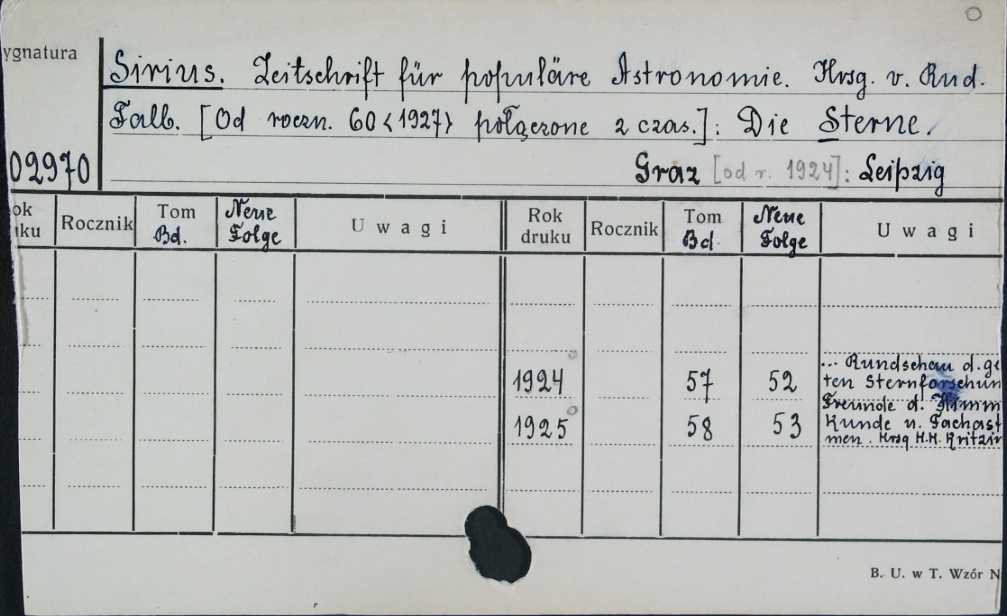 ygnatura
Sirius. Zeitschrift für populäre Astronomie. Hrsg. v. Rud.
Falb. [Od roczn. 60<1927> połączone z czas.]: Die Sterne.
02970
Graz [od r. 1924]: Leipzig
ok
uku
Rocznik
Tom
Bd.
Neue
Folge
Uwagi
Rok
druku
Rocznik
Tom
Bd.
Neue
Folge
Uwagi
... Rundschau d. ge
1924 57 52 ten Sternforschun
Freunde d. Himm
1925 58 53 Kunde u. Fachast
men. Hrsg H.H. Kritzin
B. U. w T. Wzór N